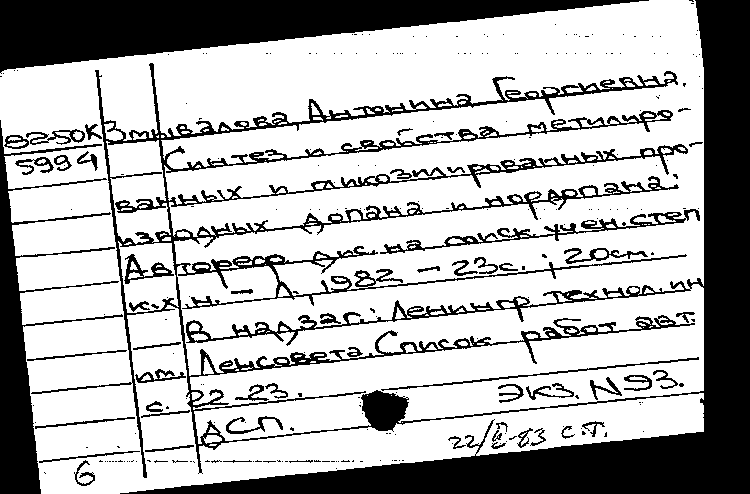 82-50К Змывалова, Антонина Георгиевна.
5994 Синтез и свойства метилиро-
ванных и гликозилированных про-
изводных допана и нордопана:
Автореф. дис. на соиск. учен. степ
к.х.н. - Л., 1982 - 23с. ; 20см.
В надзаг.: Ленингр. технол. ин
им. Ленсовета. Список работ авт.
с. 22-23.
ДСП. Экз. N93.
22/ -83 С.Т.
6